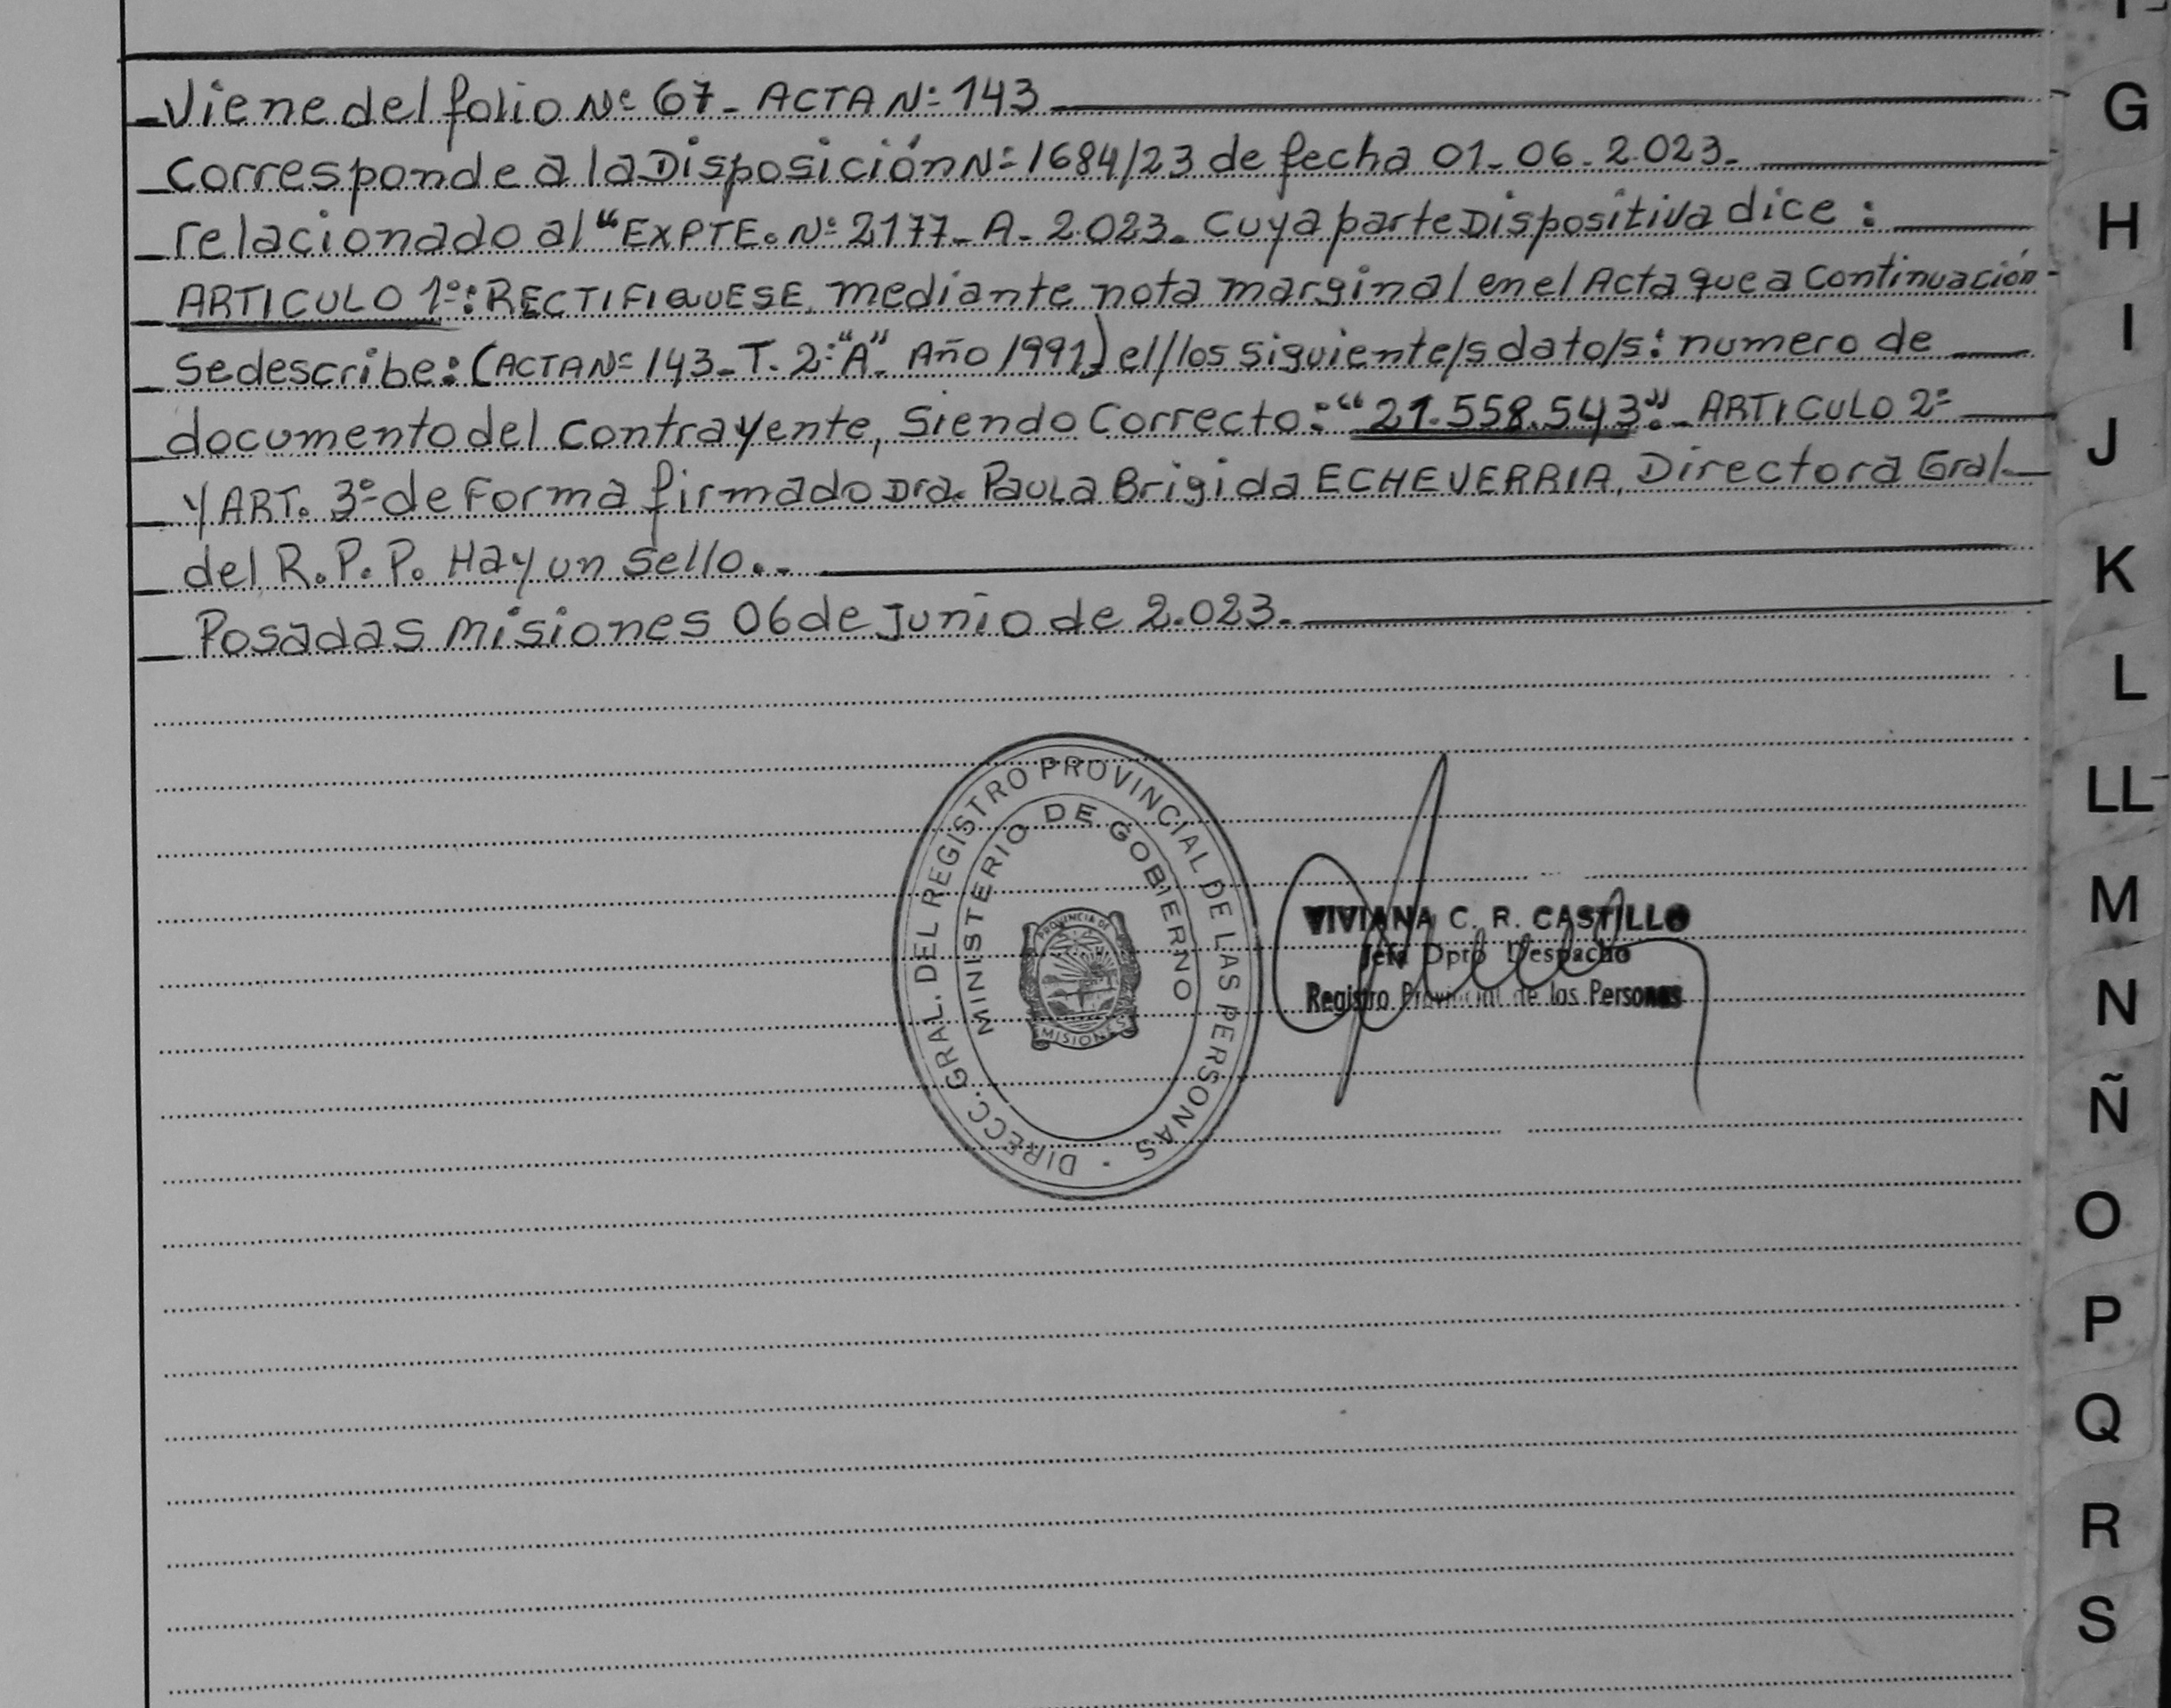 _Viene del folio Nº 67_ ACTA Nº 143
_Corresponde a la Disposición Nº 1684/23 de fecha 01_06_2.023_
_relacionado al "EXPTE. Nº 2177_A_2.023_ Cuya parte Dispositiva dice:
_ARTICULO 1º: RECTIFIQUESE, mediante nota marginal en el Acta que a Continuación-
_Se describe: (ACTA Nº 143_T. 2º "A"_ Año 1991) el/los siguiente/s dato/s: numero de
_documento del Contrayente, Siendo Correcto: "21.558.543"._ ARTICULO 2º
_y ART. 3º de Forma firmado Dra. Paula Brigida ECHEVERRIA, Directora Gral_
_del R.P.P. Hay un Sello._
_Posadas misiones 06 de Junio de 2.023_
DIRECC. GRAL. DEL REGISTRO PROVINCIAL DE LAS PERSONAS
MINISTERIO DE GOBIERNO
PROVINCIA DE
MISIONES
VIVIANA C. R. CASTILLO
Jefa Dpto Despacho
Registro Provincial de las Personas
G
H
I
J
K
L
LL
M
N
Ñ
O
P
Q
R
S